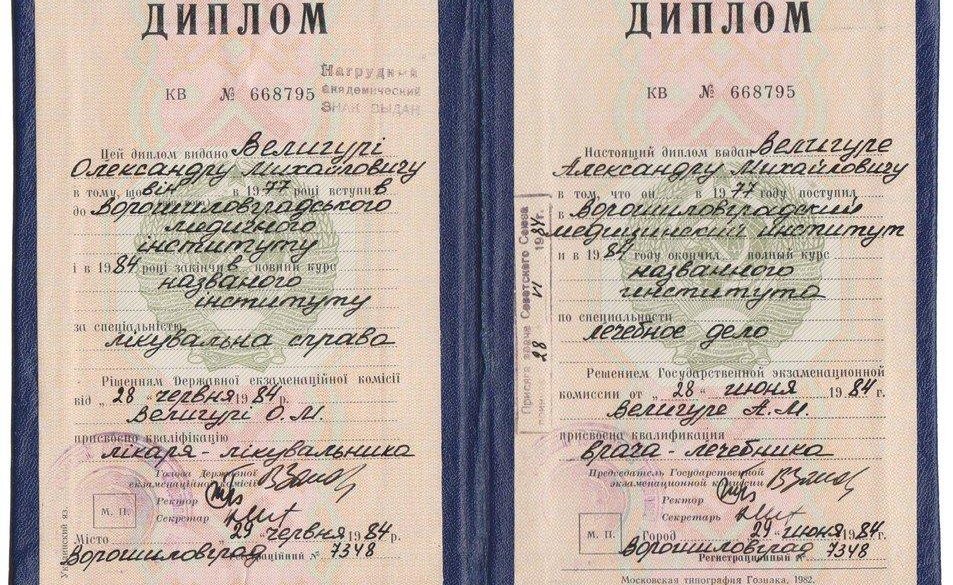 ДИПЛОМ
КВ № 668795
Нагрудный
академический
ЗНАК ВЫДАН
Цей диплом видано Велигурі
Олександру Михайловичу
в тому, що він в 1977 році вступив
до Ворошиловградського
медичного
інституту
і в 1984 році закінчив повний курс
названого
інституту
за спеціальністю
лікувальна справа
Рішенням Державної екзаменаційної комісії
від „28" червня 1984 р.
Велигурі О.М.
присвоєно кваліфікацію
лікаря-лікувальника
Голова Державної
екзаменаційної комісії
Ректор
Секретар
М. П.
Місто „29" червня 1984 р.
Ворошиловград № 7348
Украинский яз.
ДИПЛОМ
КВ № 668795
Настоящий диплом выдан Велигуре
Александру Михайловичу
в том, что он в 1977 году поступил
в Ворошиловградский
медицинский институт
и в 1984 году окончил полный курс
названного
института
по специальности
лечебное дело
Решением Государственной экзаменационной
комиссии от „28" июня 1984 г.
Велигуре А.М.
присвоена квалификация
врача-лечебника
Председатель Государственной
экзаменационной комиссии
Ректор
Секретарь
М. П.
Город „29" июня 1984 г.
Ворошиловград
Регистрационный № 7348
Московская типография Гознака, 1982.
Присяга врача Советского Союза
28 VI 1984 г.